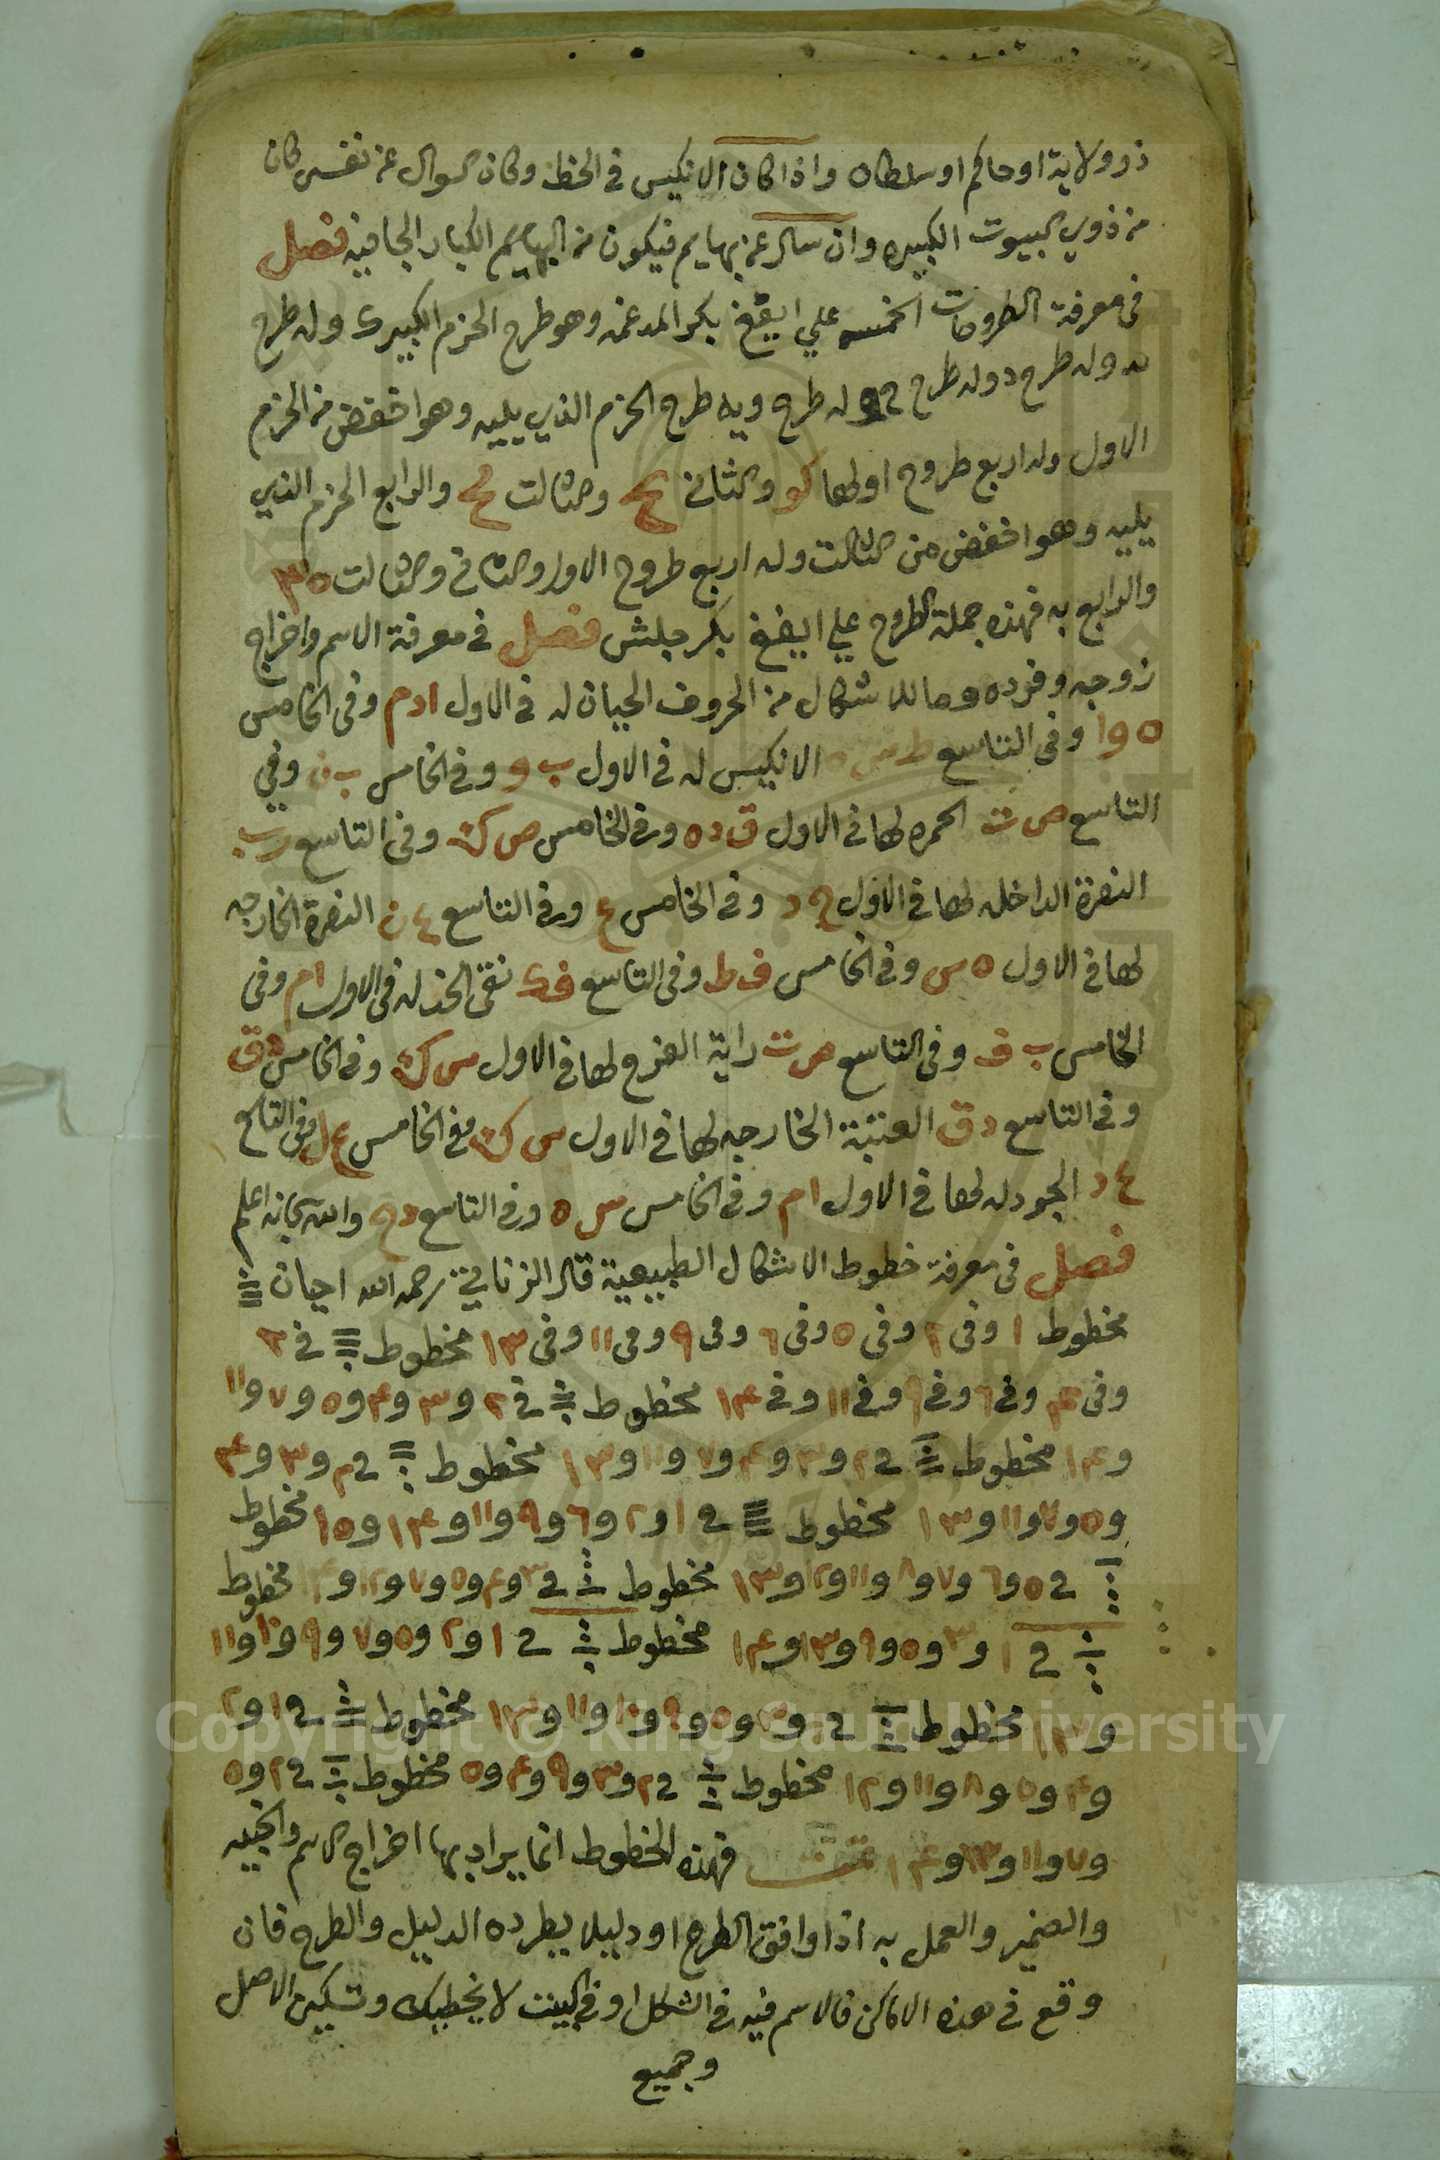 ذو ولاية او حاكم او سلطان واذا كان الانكيس في الخط وكان السوال عن نفس كان
من ذوي البيوت الكبيره وان سال عن بهايم فيكون من البهايم الكبار الجافيه فصل
في معرفة الطروحات الخمسه علي ايقغ بكر المدغمه وهو طرح الحزم الكبير ك وله طرح
وله طرح د وله طرح له طرح ويه طرح الحزم الذي يليه وهو اخفض من الحزم
الاول وله اربع طروح اولها كو والثاني والثالث والرابع الحزم الذي
يليه وهو اخفض من الثالث وله اربع طروح الاول والثاني والثالث
والرابع به فهذه جملة الطروح علي ايقغ بكر جلش فصل في معرفة الاسم واخراج
زوجه وفرده وما للاشكال من الحروف الجيان له في الاول ادم وفي الخامس
ه وا وفي التاسع الانكيس له في الاول ب و وفي الخامس ب ن وفي
التاسع ص ث الحمره لها في الاول ق د ه وفي الخامس ص ك وفي التاسع
النصرة الداخله لها في الاول وفي الخامس ع وفي التاسع ع ن النصرة الخارجه
لها في الاول ه س وفي الخامس ف ط وفي التاسع ف ك نقي الخد له في الاول ام وفي
الخامس ب ف وفي التاسع ص ت راية الفرح لها في الاول س ك وفي الخامس د ق
وفي التاسع د ق العتبة الخارجه لها في الاول س ك وفي الخامس ع ل وفي التاسع
ع د الجودله لها في الاول ام وفي الخامس س ه وفي التاسع والله سبحانه اعلم
فصل في معرفة خطوط الاشكال الطبيعية قال الزناتي رحمه الله احيان
مخطوط ١ وفي ٢ وفي ٥ وفي ٦ وفي ٩ وفي ١١ وفي ١٣ مخطوط في ٢
وفي ٤ وفي ٦ وفي ٩ وفي ١١ وفي ١٤ مخطوط في ٢ و٣ و٤ و٥ و٧ و١١
و١٤ مخطوط في ٢ و٣ و٤ و٧ و١١ و١٣ مخطوط في ٢ و٣ و٤
و٥ و٧ و١١ و١٣ مخطوط في ١ و٢ و٦ و٩ و١١ و١٤ و١٥ مخطوط
في ٥ و٦ و٧ و٨ و١١ و١٢ و١٣ مخطوط في ٣ و٤ و٥ و٧ و١٢ و١٤ مخطوط
في ١ و٣ و٥ و٩ و١٣ و١٤ مخطوط في ١ و٢ و٥ و٧ و٩ و١٠ و١١
و١٣ مخطوط في و٣ و٥ و٩ و١٠ و١١ و١٣ مخطوط في ١ و٢
و٤ و٥ و٨ و١١ و١٢ مخطوط في ٢ و٣ و٩ و٤ و٥ مخطوط في ٢ و٥
و٧ و١١ و١٣ و١٤ تمت فهذه الخطوط انما يراد بها اخراج الاسم والخبيه
والضمير والعمل به اذا وافق الطرح او دليلا يطرده الدليل والطرح فان
وقع في هذه الاماكن فالاسم فيه في الشكل او في البيت لا يخطيك وتسكين الاصل
وجميع
Copyright © King Saud University